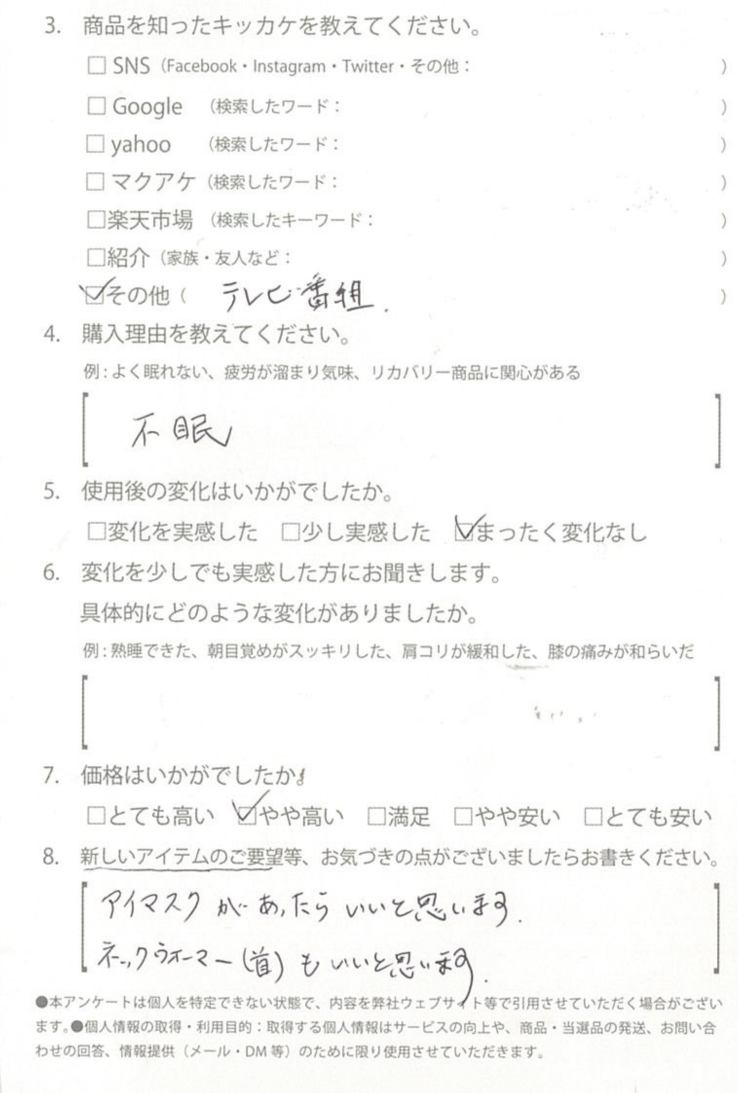 3. 商品を知ったキッカケを教えてください。
□ SNS（Facebook・Instagram・Twitter・その他： ）
□ Google （検索したワード： ）
□ yahoo （検索したワード： ）
□ マクアケ（検索したワード： ）
□楽天市場 （検索したキーワード： ）
□紹介（家族・友人など： ）
☑その他（ テレビ番組. ）
4. 購入理由を教えてください。
例：よく眠れない、疲労が溜まり気味、リカバリー商品に関心がある
不眠
5. 使用後の変化はいかがでしたか。
□変化を実感した □少し実感した ☑まったく変化なし
6. 変化を少しでも実感した方にお聞きします。
具体的にどのような変化がありましたか。
例：熟睡できた、朝目覚めがスッキリした、肩コリが緩和した、膝の痛みが和らいだ
7. 価格はいかがでしたか。
□とても高い ☑やや高い □満足 □やや安い □とても安い
8. 新しいアイテムのご要望等、お気づきの点がございましたらお書きください。
アイマスクがあったらいいと思います.
ネックウォーマー(首)もいいと思います.
●本アンケートは個人を特定できない状態で、内容を弊社ウェブサイト等で引用させていただく場合がござい
ます。●個人情報の取得・利用目的：取得する個人情報はサービスの向上や、商品・当選品の発送、お問い合
わせの回答、情報提供（メール・DM 等）のために限り使用させていただきます。